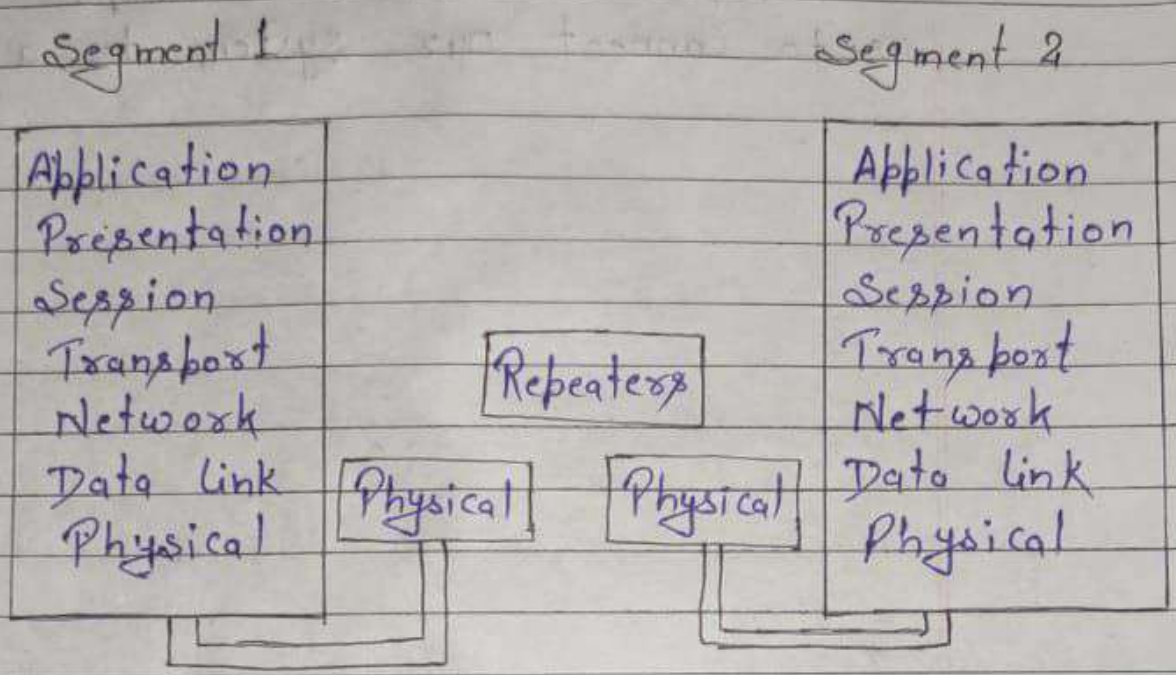 Segment 1
Segment 2
Application
Presentation
Session
Transport
Network
Data link
Physical
Repeaters
Physical
Physical
Application
Presentation
Session
Transport
Network
Data link
Physical